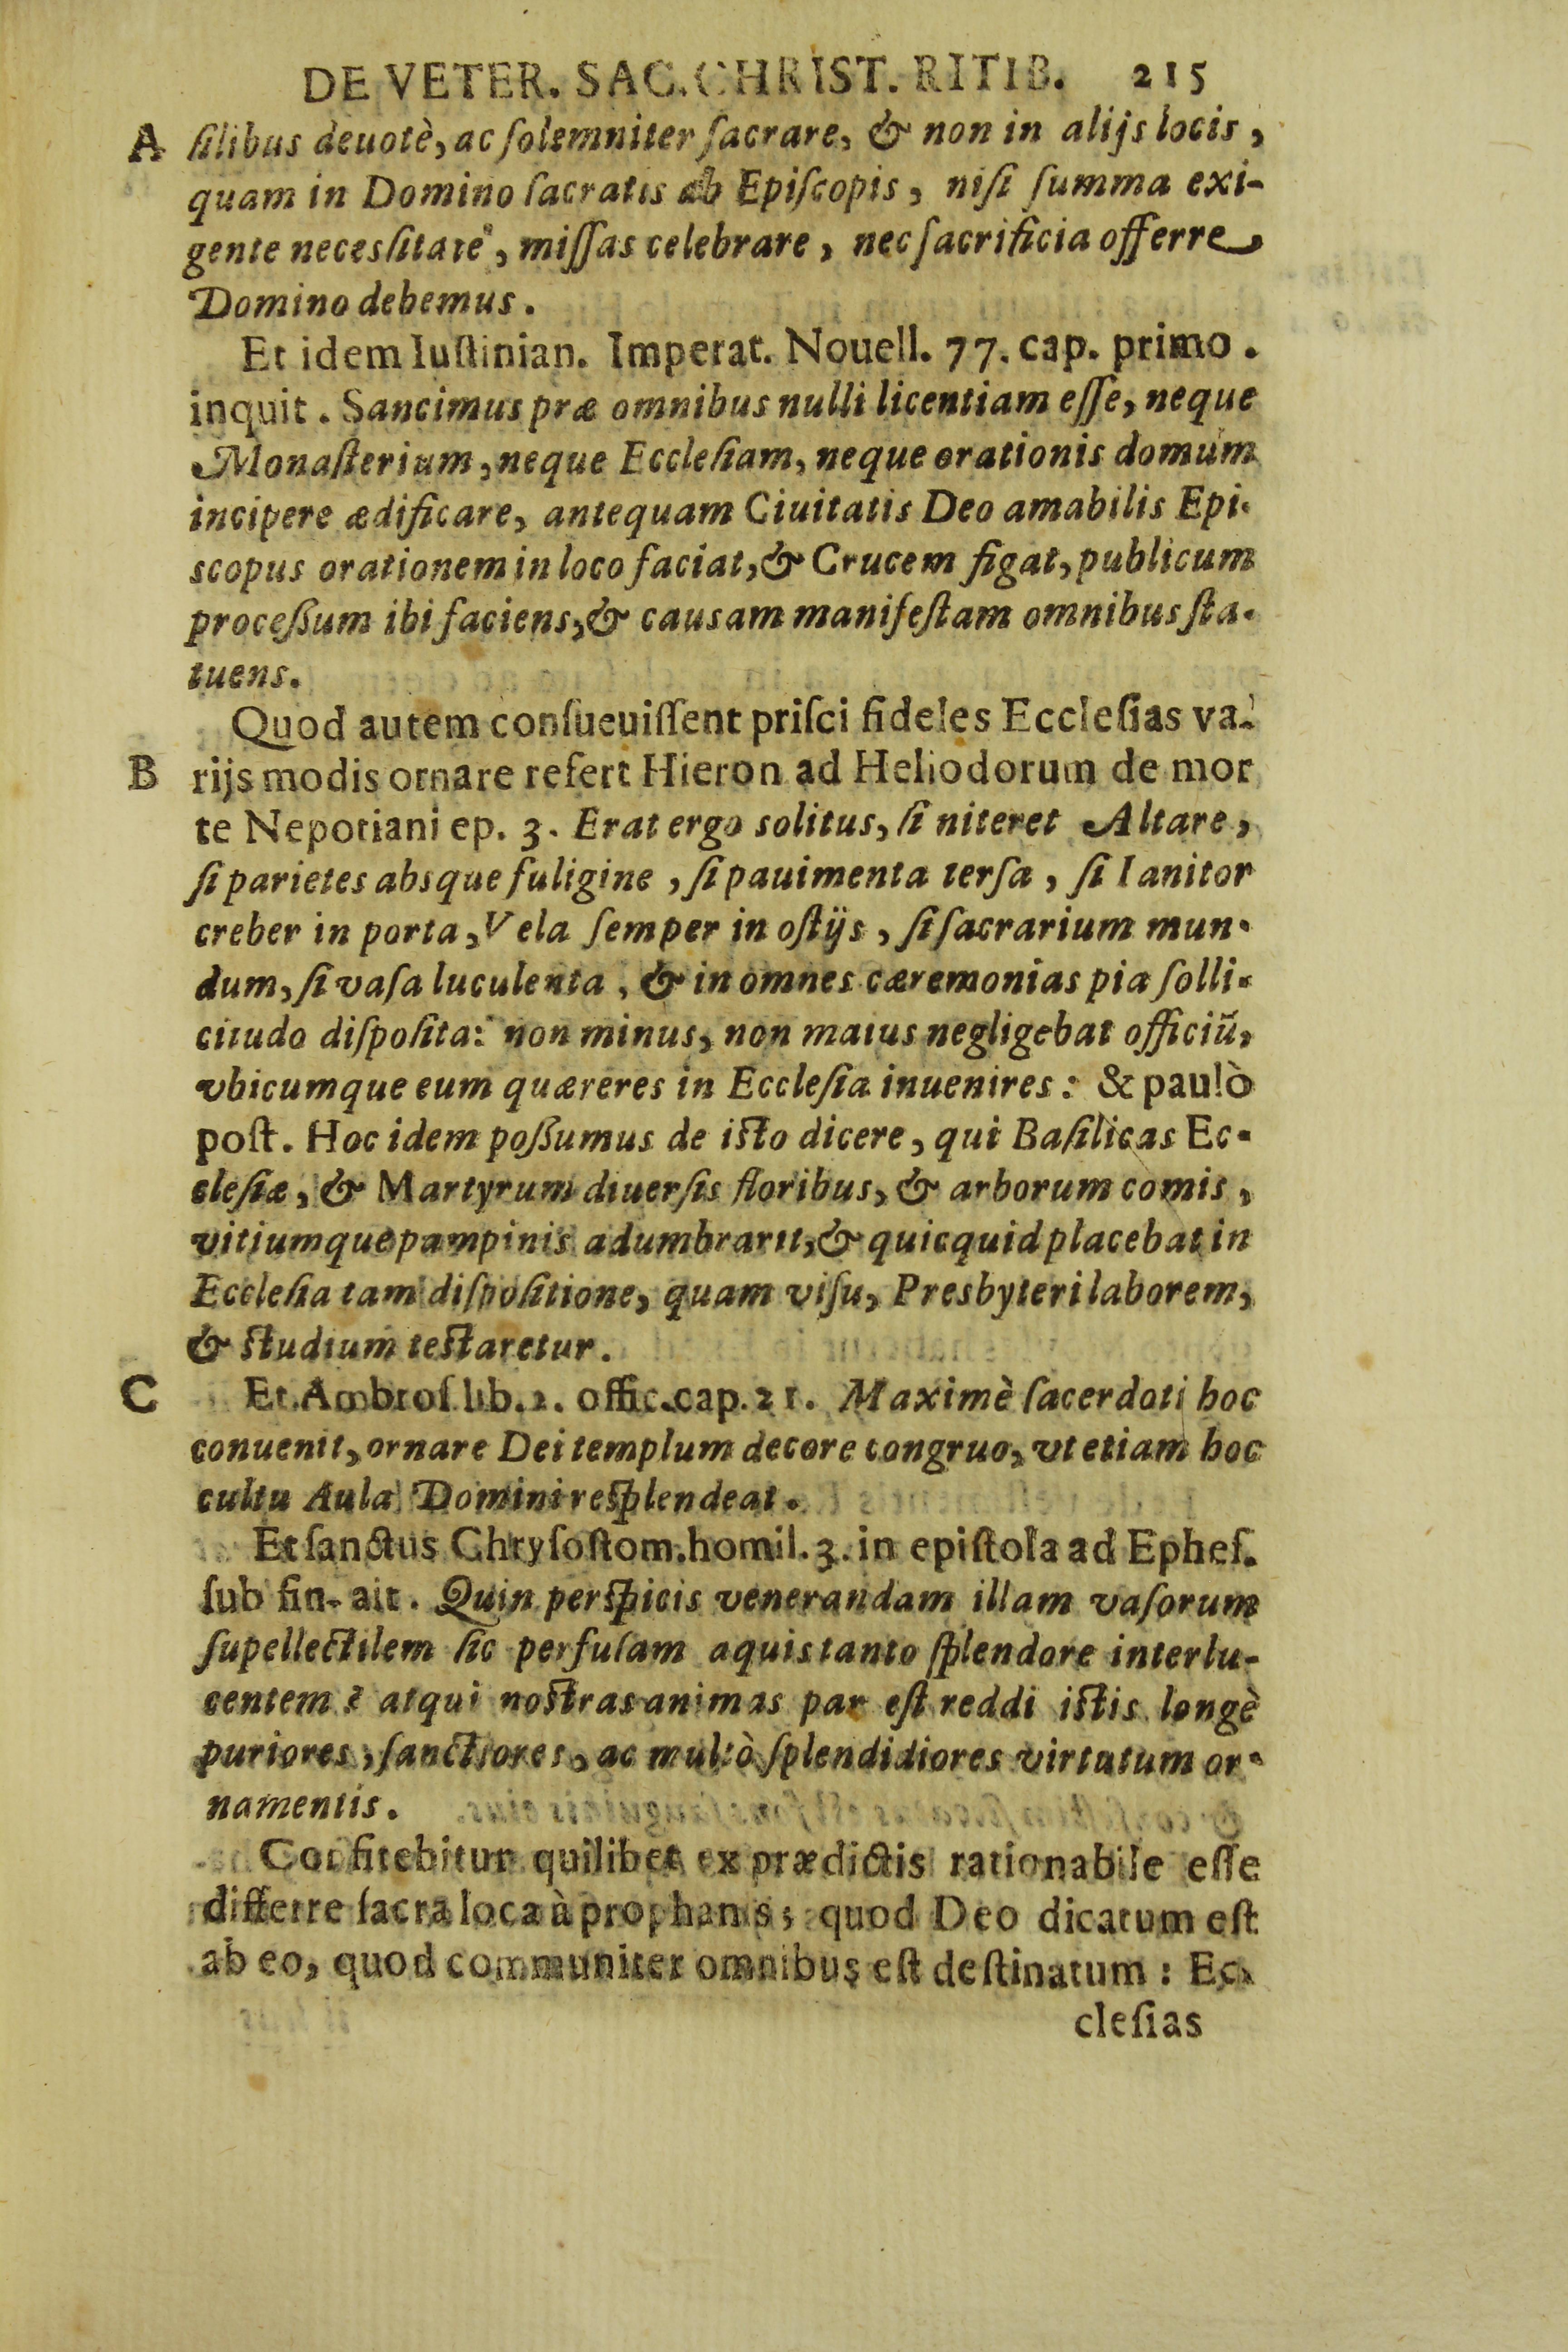 DE VETER. SAC. CHRIST. RITIB. 215
A ſilibus deuotè, ac ſolemniter ſacrare, & non in alijs locis,
quam in Domino ſacratis ab Epiſcopis, niſi ſumma exi-
gente necesſitate, miſſas celebrare, nec ſacrificia offerre
Domino debemus.
Et idem Iuſtinian. Imperat. Nouell. 77. cap. primo.
inquit. Sancimus præ omnibus nulli licentiam eſſe, neque
Monaſterium, neque Eccleſiam, neque orationis domum
incipere ædificare, antequam Ciuitatis Deo amabilis Epi-
scopus orationem in loco faciat, & Crucem figat, publicum
proceßum ibi faciens, & causam manifeſtam omnibus ſta-
tuens.
Quod autem conſueuiſſent priſci fideles Eccleſias va-
B rijs modis ornare refert Hieron ad Heliodorum de mor
te Nepotiani ep. 3. Erat ergo solitus, ſi niteret Altare,
ſi parietes absque fuligine, ſi pauimenta terſa, ſi Ianitor
creber in porta, Vela ſemper in oſtijs, ſi ſacrarium mun-
dum, ſi vaſa luculenta, & in omnes cæremonias pia ſolli-
citudo diſpoſita: non minus, non maius negligebat officiũ,
vbicumque eum quæreres in Eccleſia inuenires: & paulò
poſt. Hoc idem poßumus de iſto dicere, qui Baſilicas Ec-
cleſiæ, & Martyrum diuerſis floribus, & arborum comis,
vitiumque pampinis adumbrarit, & quicquid placebat in
Eccleſia tam diſpoſitione, quam viſu, Presbyteri laborem,
& ſtudium teſtaretur.
C Et Ambroſ lib. 2. offic. cap. 21. Maximè ſacerdoti hoc
conuenit, ornare Dei templum decore congruo, vt etiam hoc
cultu Aula Domini reſplendeat.
Et ſanctus Chryſoſtom. homil. 3. in epiſtola ad Epheſ.
ſub fin. ait. Quin perſpicis venerandam illam vaſorum
ſupellectilem ſic perfuſam aquis tanto ſplendore interlu-
centem? atqui noſtras animas par eſt reddi iſtis longè
puriores, ſanctiores, ac multò ſplendidiores virtutum or-
namentis.
Confitebitur quilibet ex prædictis rationabile eſſe
differre ſacra loca à prophanis; quod Deo dicatum eſt
ab eo, quod communiter omnibus eſt deſtinatum: Ec-
cleſias